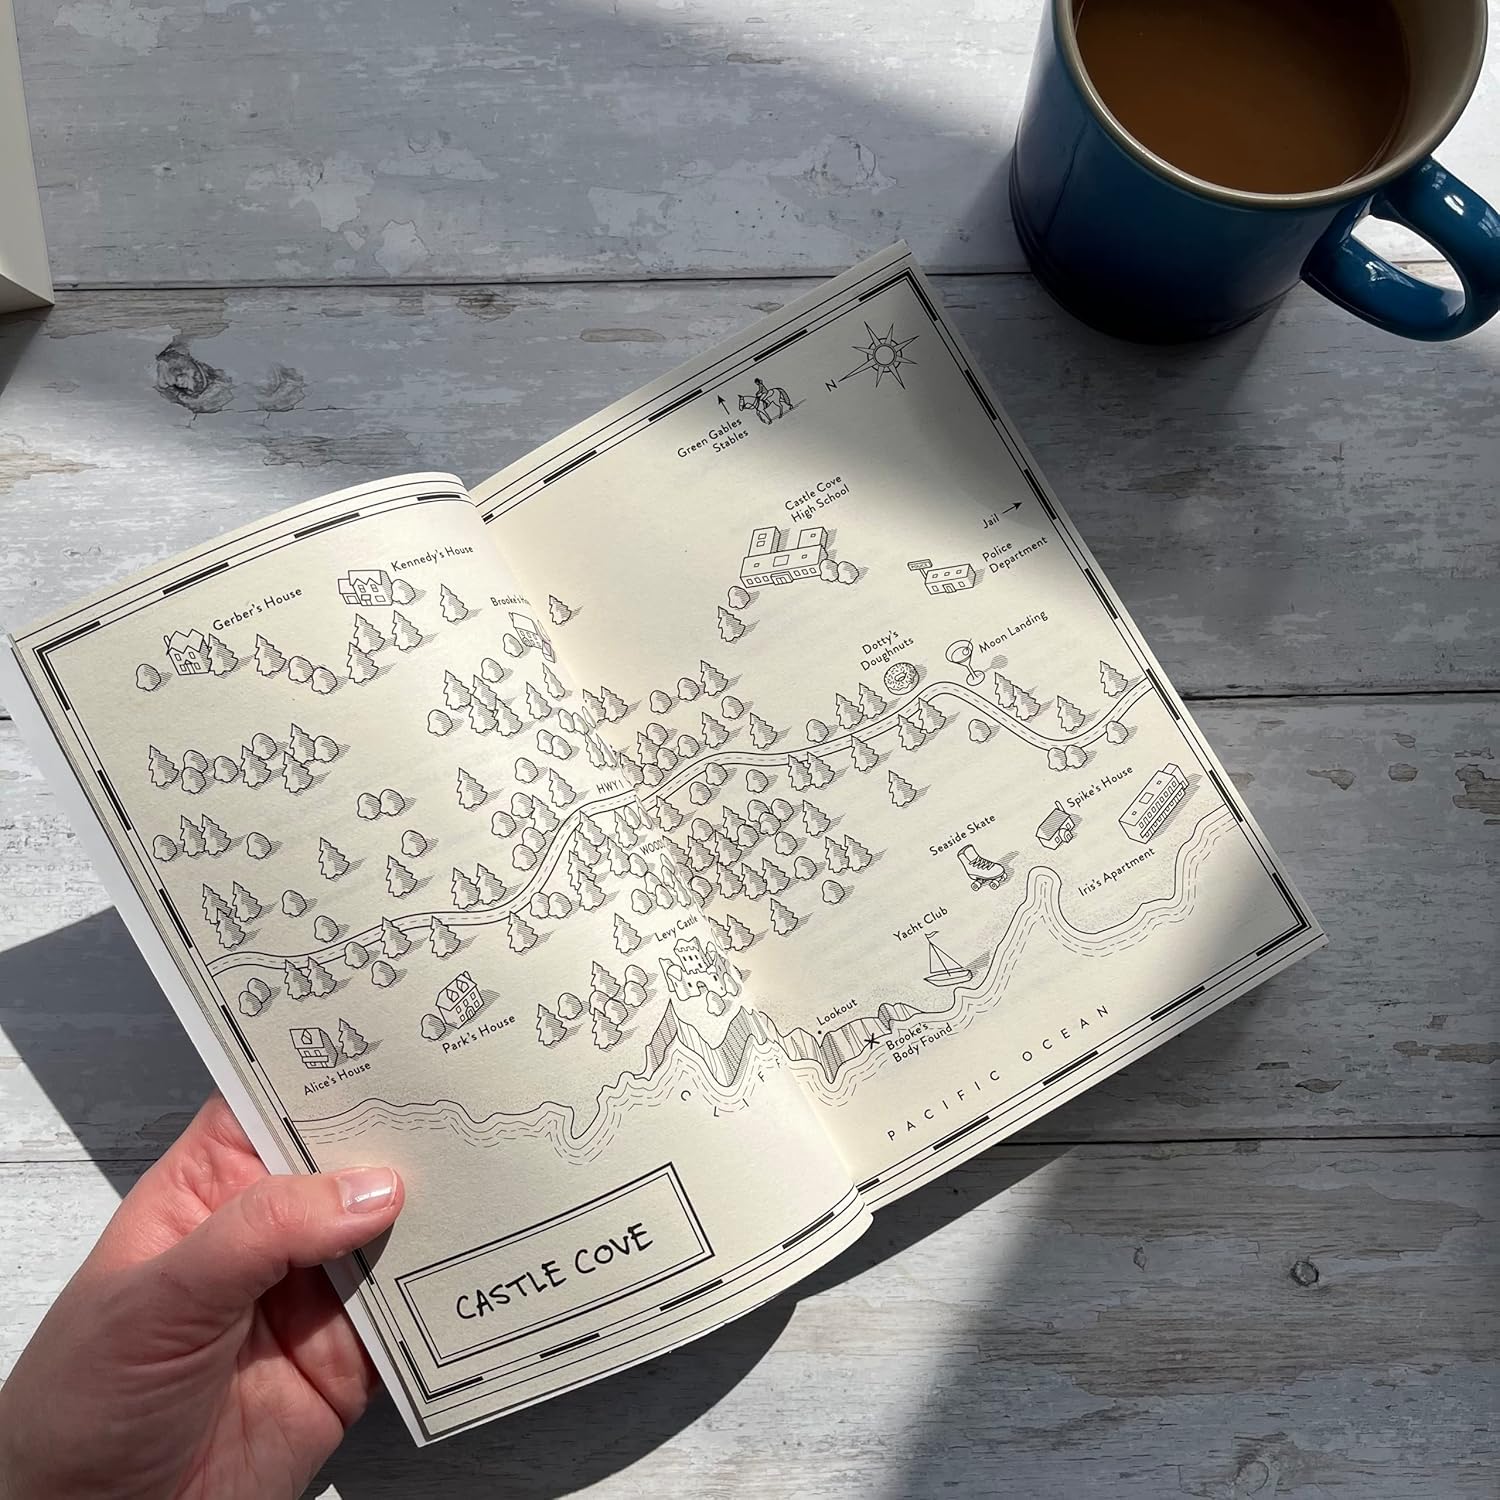 Gerber's House
Kennedy's House
Brooke's
HWY 1
Levy Castle
Park's House
Alice's House
CLIFF
CASTLE COVE
N
Green Gables
Stables
Castle Cove
High School
Jail
Police
Department
Dotty's
Doughnuts
Moon Landing
Spike's House
Seaside Skate
Iris's Apartment
Yacht Club
Lookout
Brooke's
Body Found
PACIFIC OCEAN